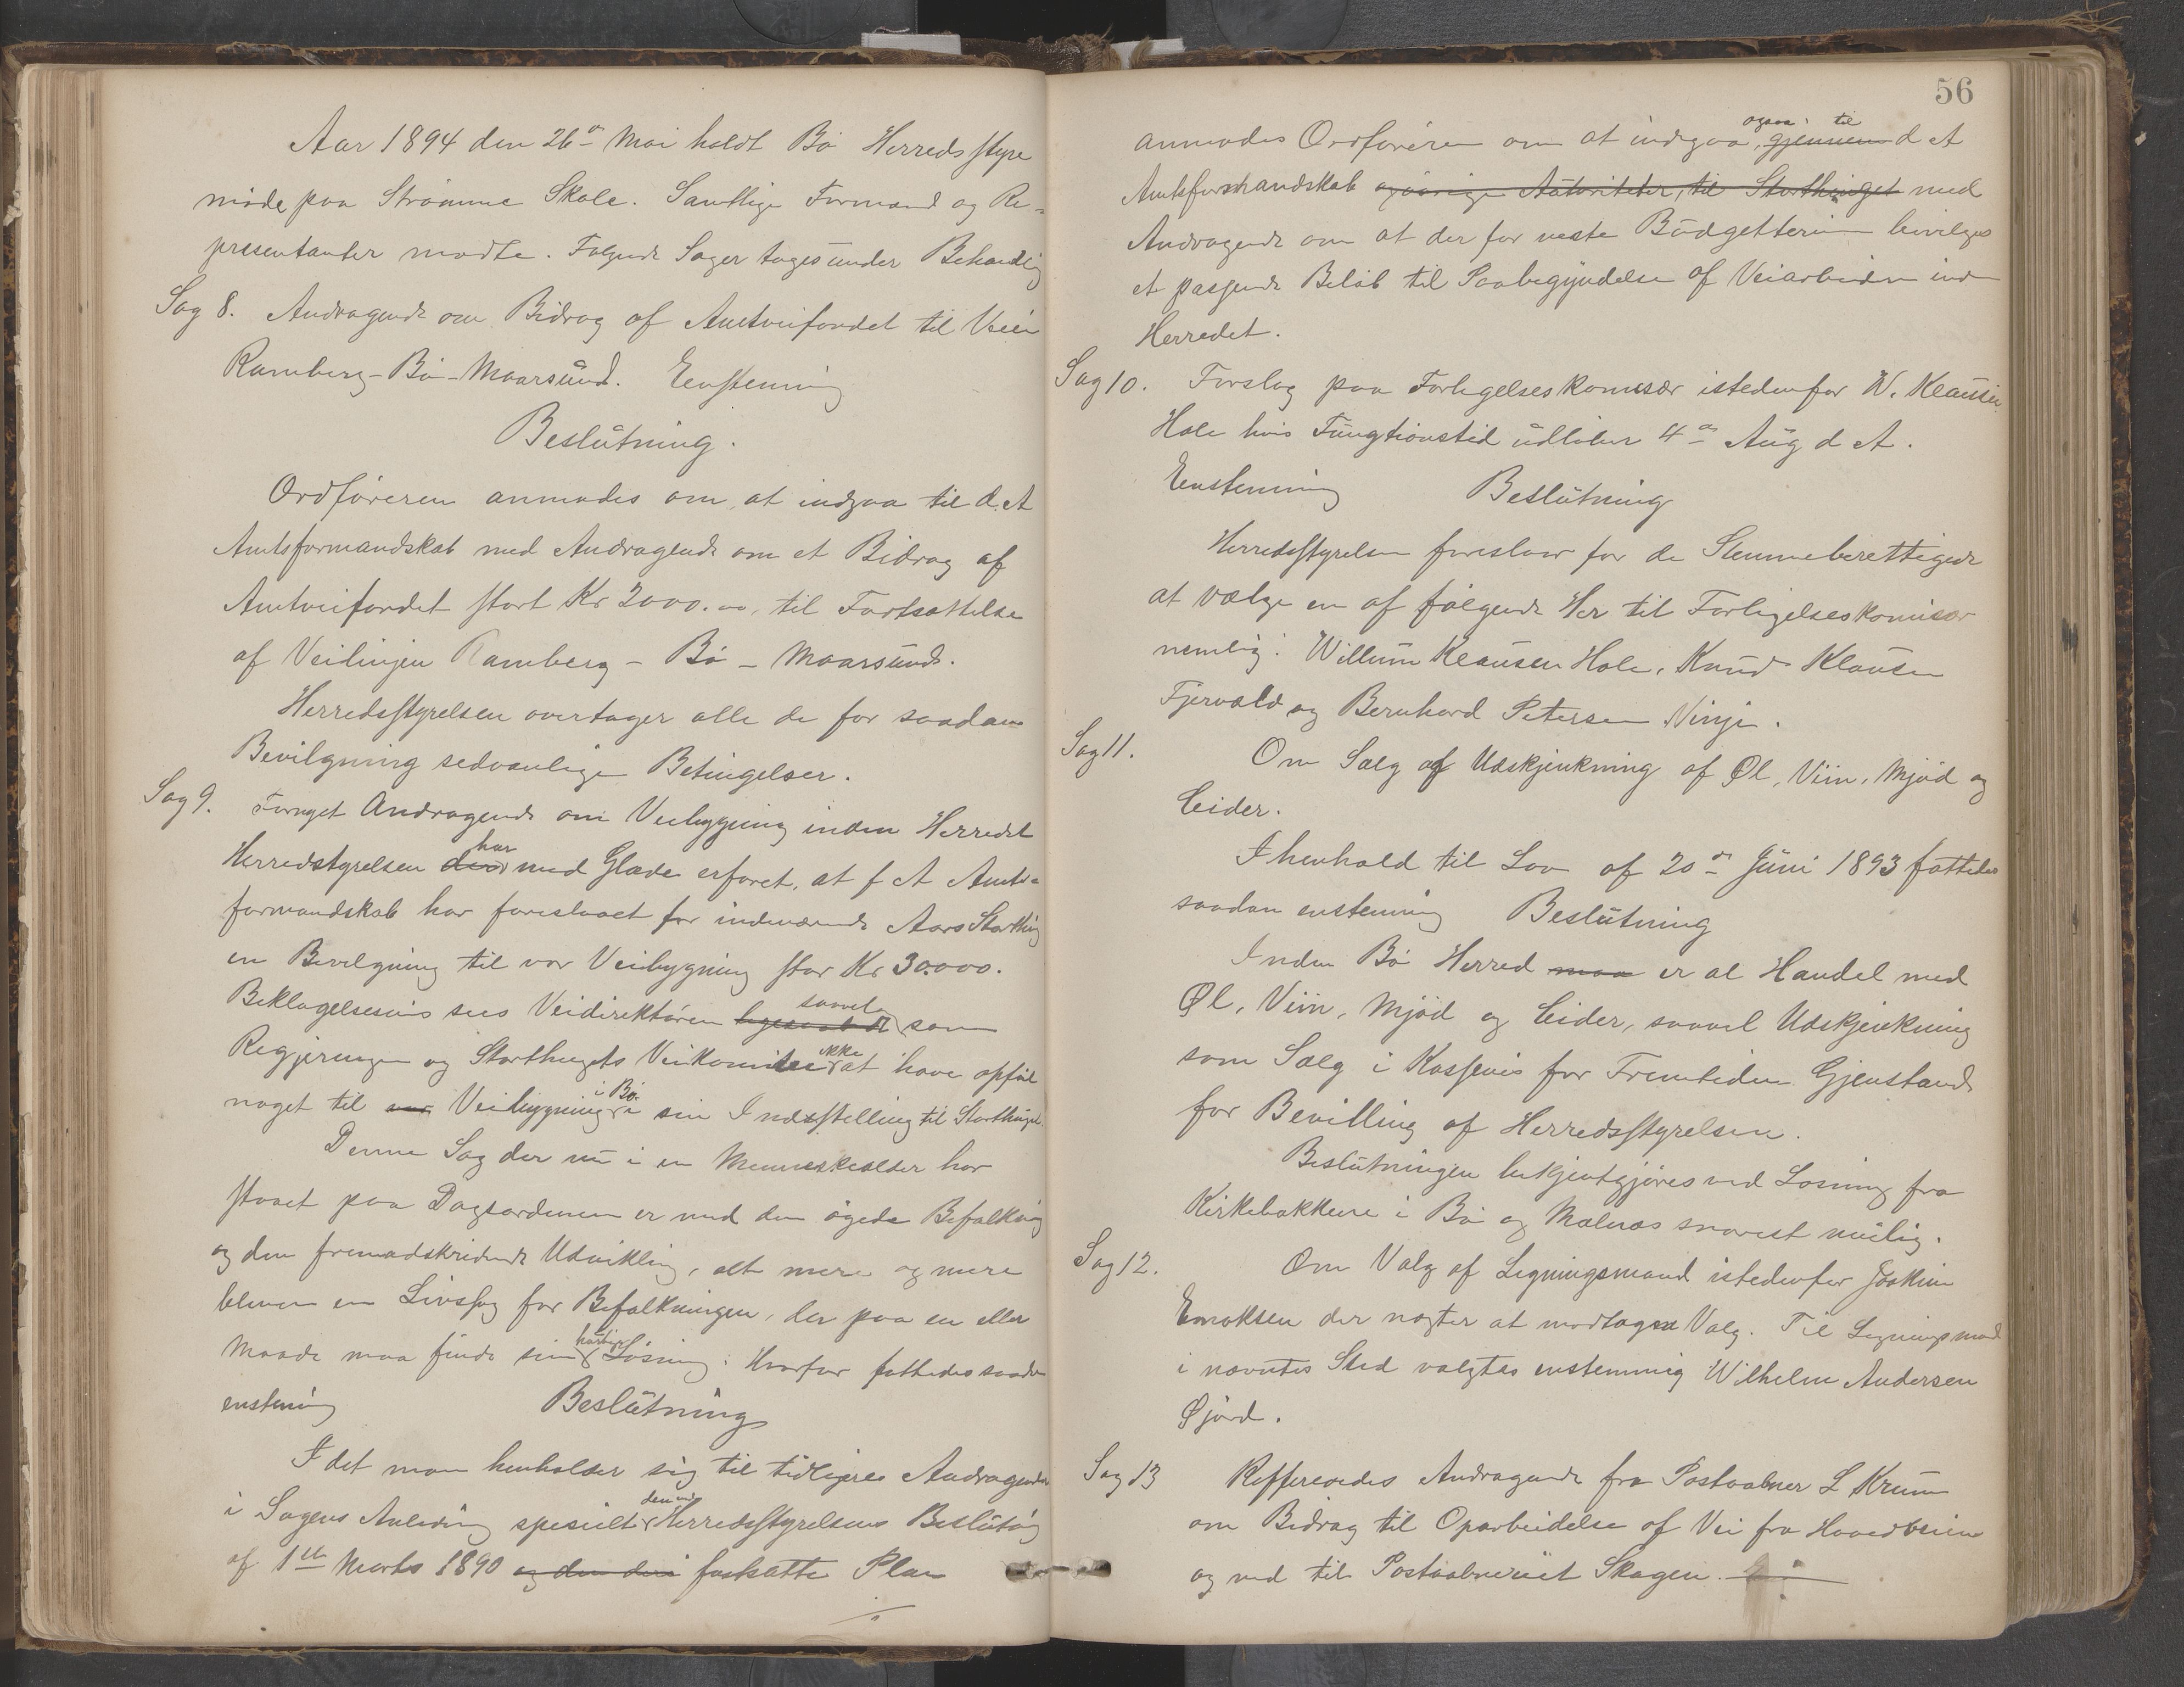 Aar 1894 den 26de Mai holdt Bø Herredsstyre
møde paa Strømme Skole. Samtlige Formænd og Re-
presentanter mødte. Følgende Sager toges under Behandling
Sag 8. Andragende om Bidrag af Amtveifondet til Veien
Ramberg-Bø-Maarsund. Eenstemmig
Beslutning.
Ordføreren anmodes om at indgaa til d. A
Amtsformandskab med Andragende om et Bidrag af
Amtveifondet stort Kr 2000.00, til Fortsættelse
af Veilinjen Ramberg - Bø - Maarsund.
Herredsstyrelsen overtager alle de for saadan
Bevilgning sedvanlige Betingelser.
Sag 9. Fornyet Andragende om Veibygning inden Herredet
har
Herredstyrelsen med Glæde erfaret, at f A Amts-
formandskab har foreslaaet for indeværende Aars Storthing
en Bevilgning til vor Veibygning stor Kr 30.000.
saavel
Beklagelsesvis sees Veidirektøren ligesaavidt som
ikke
Regjeringen og Storthingets Veikomitee at have opført
i Bø
noget til vor Veibygning i sin Indstilling til Storthinget.
Denne Sag der nu i en Menneskealder har
staaet paa Dagsordenen er med den øgede Befolkning
og den fremadskridende Udvikling, alt mere og mere
bleven en Livssag for Befolkningen, der paa en eller
hurtige
Maade maa finde sin Løsning. Hvorfor fattedes saadan
enstemmig Beslutning
I det man henholder sig til tidligere Andragender
den ved
i Sagens Anledning spesielt Herredsstyrelsens Beslutning
af 1ste Marts 1890 og den deri fastsatte Plan
56
ogsaa til
anmodes Ordføreren om at indgaa, gjennem d A
Amtsformandskab og øvrige Autoriteter, til Storthinget med
Andragende om at der for neste Budgettermin bevilges
et passende Beløb til Paabegyndelse af Veiarbeiden inden
Herredet.
Sag 10. Forslag paa Forligelseskomisær istedenfor W. Klausen
Hole hvis Fungtionstid udløber 4de Aug d A.
Eenstemmig Beslutning
Herredsstyrelsen foreslaar for de Stemmeberettigede
at vælge en af følgende Her til Forligelseskomisær
nemlig: Willum Klausen Hole, Knud Klausen
Fjervold og Bernhard Petersen Vinje.
Sag 11. Om Salg af Udskjenkning af Øl, Viin, Mjød og
Cider.
I henhold til Lov af 20de Juni 1893 fattedes
saadan enstemmig Beslutning
Inden Bø Herred maa er al Handel med
Øl, Viin, Mjød og Cider, saavel Udskjenkning
som Salg i Kassevis for Fremtiden Gjenstand
for Bevilling af Herredsstyrelsen.
Beslutningen bekjentgjøres ved Læsning fra
Kirkebakkene i Bø og Malnæs snarest muilig.
Sag 12. Om Valg af Ligningsmand istedenfor Joakim
Enoksen der nægter at modtage Valg. Til Ligningsmand
i nævntes Sted valgtes enstemmig Wilhelm Andersen
Øjord.
Sag 13 Reffereredes Andragende fra Postaabner L Krum
om Bidrag til Oparbeidelse af Vei fra Hovedveien
og ned til Postaabneriet Skagen.